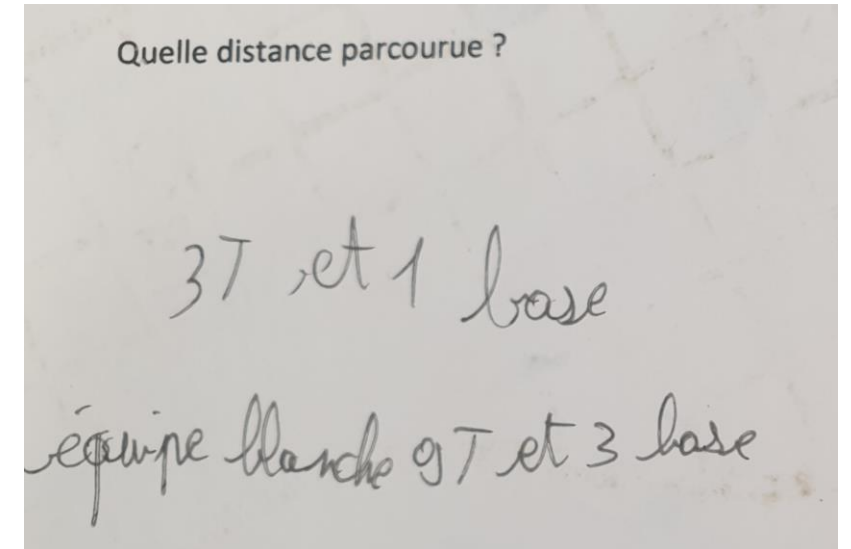 Quelle distance parcourue ?
3T et 1 base
équipe blanche 9T et 3 base